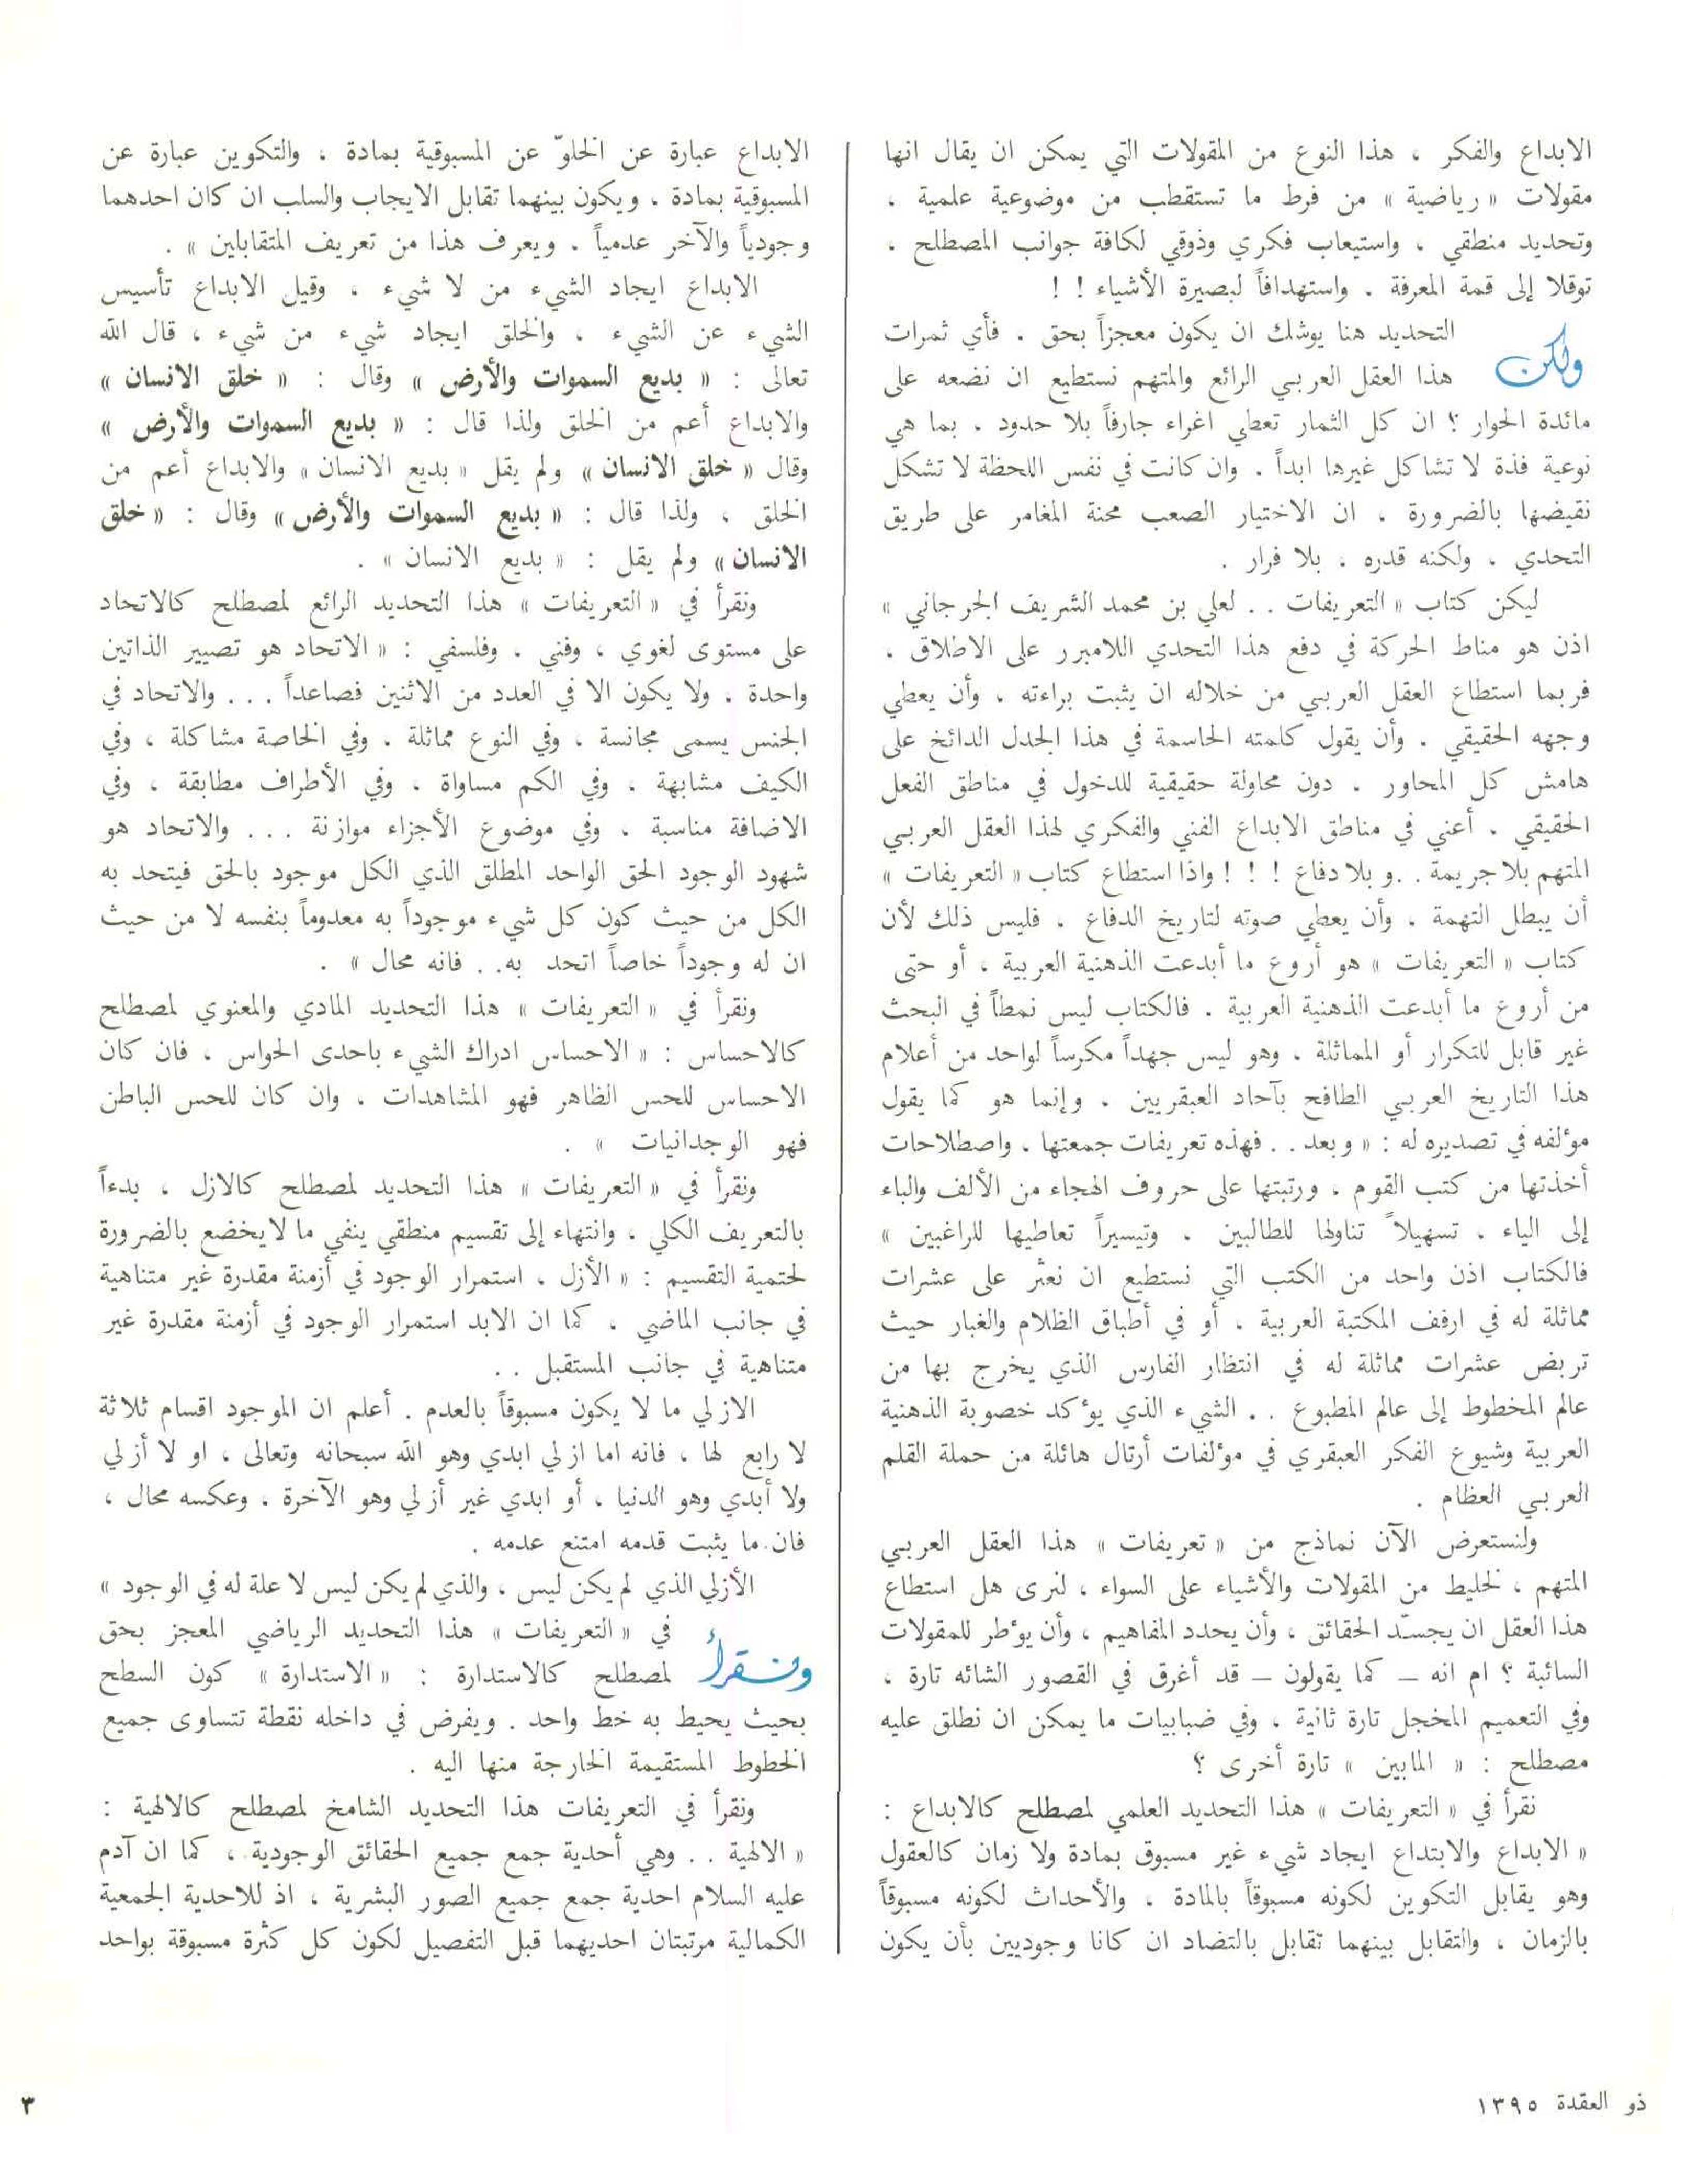 الابداع والفكر ، هذا النوع من المقولات التي يمكن ان يقال انها
مقولات « رياضية » من فرط ما تستقطب من موضوعية علمية ،
وتحديد منطقي ، واستيعاب فكري وذوقي لكافة جوانب المصطلح ،
توقلا إلى قمة المعرفة . واستهدافاً لبصيرة الأشياء ! !
ولكن التحديد هنا يوشك ان يكون معجزاً بحق . فأي ثمرات
هذا العقل العربي الرائع والمتهم نستطيع ان نضعه على
مائدة الحوار ؟ ان كل الثمار تعطي اغراء جارفاً بلا حدود ، بما هي
نوعية فذة لا تشاكل غيرها ابداً . وان كانت في نفس اللحظة لا تشكل
نقيضها بالضرورة . ان الاختيار الصعب محنة المغامر على طريق
التحدي ، ولكنه قدره ، بلا فرار .
ليكن كتاب « التعريفات . . لعلي بن محمد الشريف الجرجاني »
اذن هو مناط الحركة في دفع هذا التحدي اللامبرر على الاطلاق ،
فربما استطاع العقل العربي من خلاله ان يثبت براءته ، وأن يعطي
وجهه الحقيقي . وأن يقول كلمته الحاسمة في هذا الجدل الدائخ على
هامش كل المحاور . دون محاولة حقيقية للدخول في مناطق الفعل
الحقيقي . أعني في مناطق الابداع الفني والفكري لهذا العقل العربي
المتهم بلا جريمة . . و بلا دفاع ! ! ! واذا استطاع كتاب « التعريفات »
أن يبطل التهمة . وأن يعطي صوته لتاريخ الدفاع . فليس ذلك لأن
كتاب « التعريفات » هو أروع ما أبدعت الذهنية العربية ، أو حتى
من أروع ما أبدعت الذهنية العربية . فالكتاب ليس نمطاً في البحث
غير قابل للتكرار أو المماثلة ، وهو ليس جهداً مكرساً لواحد من أعلام
هذا التاريخ العربي الطافح بآحاد العبقريين . وإنما هو كما يقول
مؤلفه في تصديره له : « وبعد . . فهذه تعريفات جمعتها ، واصطلاحات
أخذتها من كتب القوم . ورتبتها على حروف الهجاء من الألف والباء
إلى الياء ، تسهيلاً تناولها للطالبين . وتيسيراً تعاطيها للراغبين »
فالكتاب اذن واحد من الكتب التي نستطيع ان نعثر على عشرات
مماثلة له في ارفف المكتبة العربية . أو في أطباق الظلام والغبار حيث
تربض عشرات مماثلة له في انتظار الفارس الذي يخرج بها من
عالم المخطوط إلى عالم المطبوع . . الشيء الذي يؤكد خصوبة الذهنية
العربية وشيوع الفكر العبقري في مؤلفات أرتال هائلة من حملة القلم
العربي العظام .
ولنستعرض الآن نماذج من « تعريفات » هذا العقل العربي
المتهم ، لخليط من المقولات والأشياء على السواء ، لنرى هل استطاع
هذا العقل ان يجسّد الحقائق ، وأن يحدد المفاهيم ، وأن يؤطر للمقولات
السائبة ؟ ام انه – كما يقولون – قد أغرق في القصور الشائه تارة ،
وفي التعميم المخجل تارة ثانية ، وفي ضبابيات ما يمكن ان نطلق عليه
مصطلح : « المابين » تارة أخرى ؟
نقرأ في « التعريفات » هذا التحديد العلمي لمصطلح كالابداع :
« الابداع والابتداع ايجاد شيء غير مسبوق بمادة ولا زمان كالعقول
وهو يقابل التكوين لكونه مسبوقاً بالمادة ، والأحداث لكونه مسبوقاً
بالزمان ، والتقابل بينهما تقابل بالتضاد ان كانا وجوديين بأن يكون
الابداع عبارة عن الخلوّ عن المسبوقية بمادة ، والتكوين عبارة عن
المسبوقية بمادة ، ويكون بينهما تقابل الايجاب والسلب ان كان احدهما
وجودياً والآخر عدمياً . ويعرف هذا من تعريف المتقابلين » .
الابداع ايجاد الشيء من لا شيء ، وقيل الابداع تأسيس
الشيء عن الشيء ، والخلق ايجاد شيء من شيء ، قال الله
تعالى : « بديع السموات والأرض » وقال : « خلق الانسان »
والابداع أعم من الخلق ولذا قال : « بديع السموات والأرض »
وقال « خلق الانسان » ولم يقل « بديع الانسان » والابداع أعم من
الخلق ، ولذا قال : « بديع السموات والأرض » وقال : « خلق
الانسان » ولم يقل : « بديع الانسان » .
ونقرأ في « التعريفات » هذا التحديد الرائع لمصطلح كالاتحاد
على مستوى لغوي ، وفني . وفلسفي : « الاتحاد هو تصيير الذاتين
واحدة . ولا يكون الا في العدد من الاثنين فصاعداً . . . والاتحاد في
الجنس يسمى مجانسة ، وفي النوع مماثلة . وفي الخاصة مشاكلة ، وفي
الكيف مشابهة ، وفي الكم مساواة ، وفي الأطراف مطابقة ، وفي
الاضافة مناسبة . وفي موضوع الأجزاء موازنة . . . والاتحاد هو
شهود الوجود الحق الواحد المطلق الذي الكل موجود بالحق فيتحد به
الكل من حيث كون كل شيء موجوداً به معدوماً بنفسه لا من حيث
ان له وجوداً خاصاً اتحد به. . فانه محال » .
ونقرأ في « التعريفات » هذا التحديد المادي والمعنوي لمصطلح
كالاحساس : « الاحساس ادراك الشيء باحدى الحواس ، فان كان
الاحساس للحس الظاهر فهو المشاهدات ، وان كان للحس الباطن
فهو الوجدانيات » .
ونقرأ في « التعريفات » هذا التحديد لمصطلح كالازل ، بدءاً
بالتعريف الكلي ، وانتهاء إلى تقسيم منطقي ينفي ما لا يخضع بالضرورة
لحتمية التقسيم : « الأزل ، استمرار الوجود في أزمنة مقدرة غير متناهية
في جانب الماضي ، كما ان الابد استمرار الوجود في أزمنة مقدرة غير
متناهية في جانب المستقبل . .
الازلي ما لا يكون مسبوقاً بالعدم . أعلم ان الموجود اقسام ثلاثة
لا رابع لها ، فانه اما ازلي ابدي وهو الله سبحانه وتعالى ، او لا أزلي
ولا أبدي وهو الدنيا ، أو ابدي غير أزلي وهو الآخرة . وعكسه محال ،
فان ما يثبت قدمه امتنع عدمه .
الأزلي الذي لم يكن ليس ، والذي لم يكن ليس لا علة له في الوجود »
ونقرأ في « التعريفات » هذا التحديد الرياضي المعجز بحق
لمصطلح كالاستدارة : « الاستدارة » كون السطح
بحيث يحيط به خط واحد . ويفرض في داخله نقطة تتساوى جميع
الخطوط المستقيمة الخارجة منها اليه .
ونقرأ في التعريفات هذا التحديد الشامخ لمصطلح كالالهية :
« الالهية . . وهي أحدية جمع جميع الحقائق الوجودية ، كما ان آدم
عليه السلام احدية جمع جميع الصور البشرية ، اذ للاحدية الجمعية
الكمالية مرتبتان احديهما قبل التفصيل لكون كل كثرة مسبوقة بواحد
ذو العقدة ١٣٩٥
٣